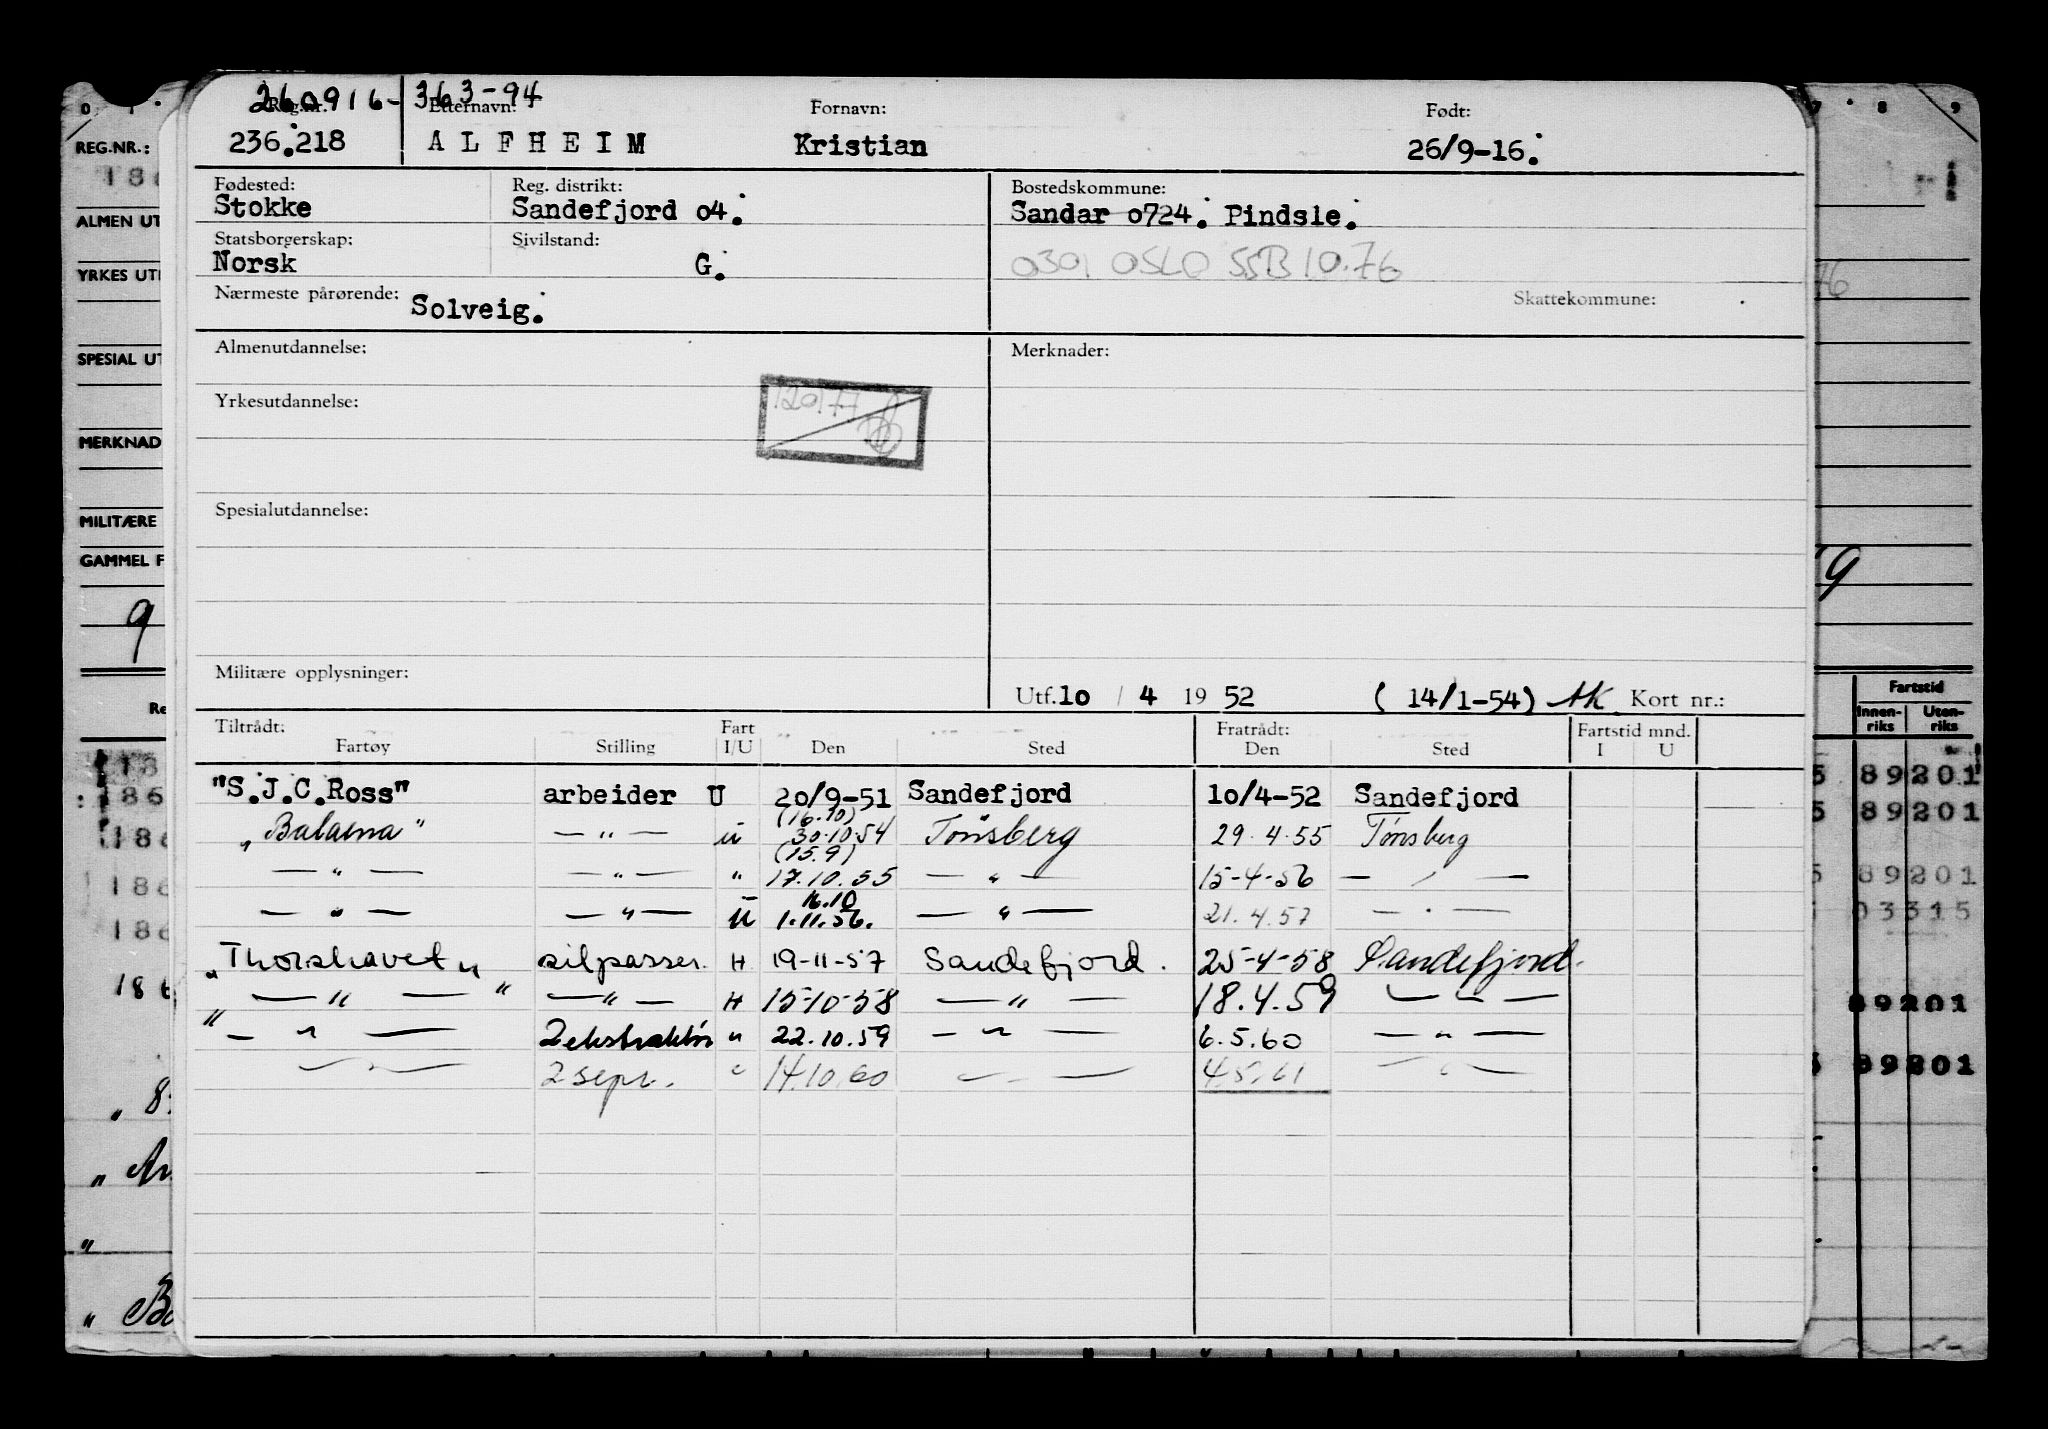 260916- 363-94
Reg.nr. Etternavn: Fornavn: Født:
236.218 ALFHEIM Kristian 26/9-16.
Fødested: Reg. distrikt: Bostedskommune:
Stokke Sandefjord o4. Sandar o724. Pindsle.
Statsborgerskap: Sivilstand:
Norsk G. 0301 OSLO SSB 10.76
Nærmeste pårørende: Solveig. Skattekommune:
Almenutdannelse: Merknader:
Yrkesutdannelse: 120177
Spesialutdannelse:
Militære opplysninger:
Utf. 1o / 4 19 52 (14/1-54) AK Kort nr.:
Tiltrådt: Fart Fratrådt: Fartstid mnd.
Fartøy Stilling I/U Den Sted Den Sted I U
"S.J.C.Ross" arbeider U 2o/9-51 Sandefjord 1o/4-52 Sandefjord
(16.10)
"Balaena" —"— u 30.10.54 Tönsberg 29.4.55 Tønsberg
(15.9)
—"— —"— " 17.10.55 —"— 15-4-56 —"—
16.10
—"— —"— U 1.11.56. —"— 21.4.57 —"—
"Thorshavet" oilpasser. H 19-11-57 Sandefjord. 25-4-58 Sandefjord.
"—"—" —"— H 15-10-58 —"— 18.4.59 —"—
"—"— 2 ekstraktör " 22.10.59 —"— 6.5.60 —"—
—"— 2 sepr. " 14.10.60 —"— 4.5.61 —"—
REG.NR.:
186
ALMEN UT
YRKES UT
SPESIAL UT
MERKNAD
MILITÆRE
GAMMEL F
9
Re
186
186
186
186
186
" 8
" An
"
" Ba
7 8 9
76
9
Fartstid
Innen-riks Uten-riks
89201
89201
89201
03315
89201
89201